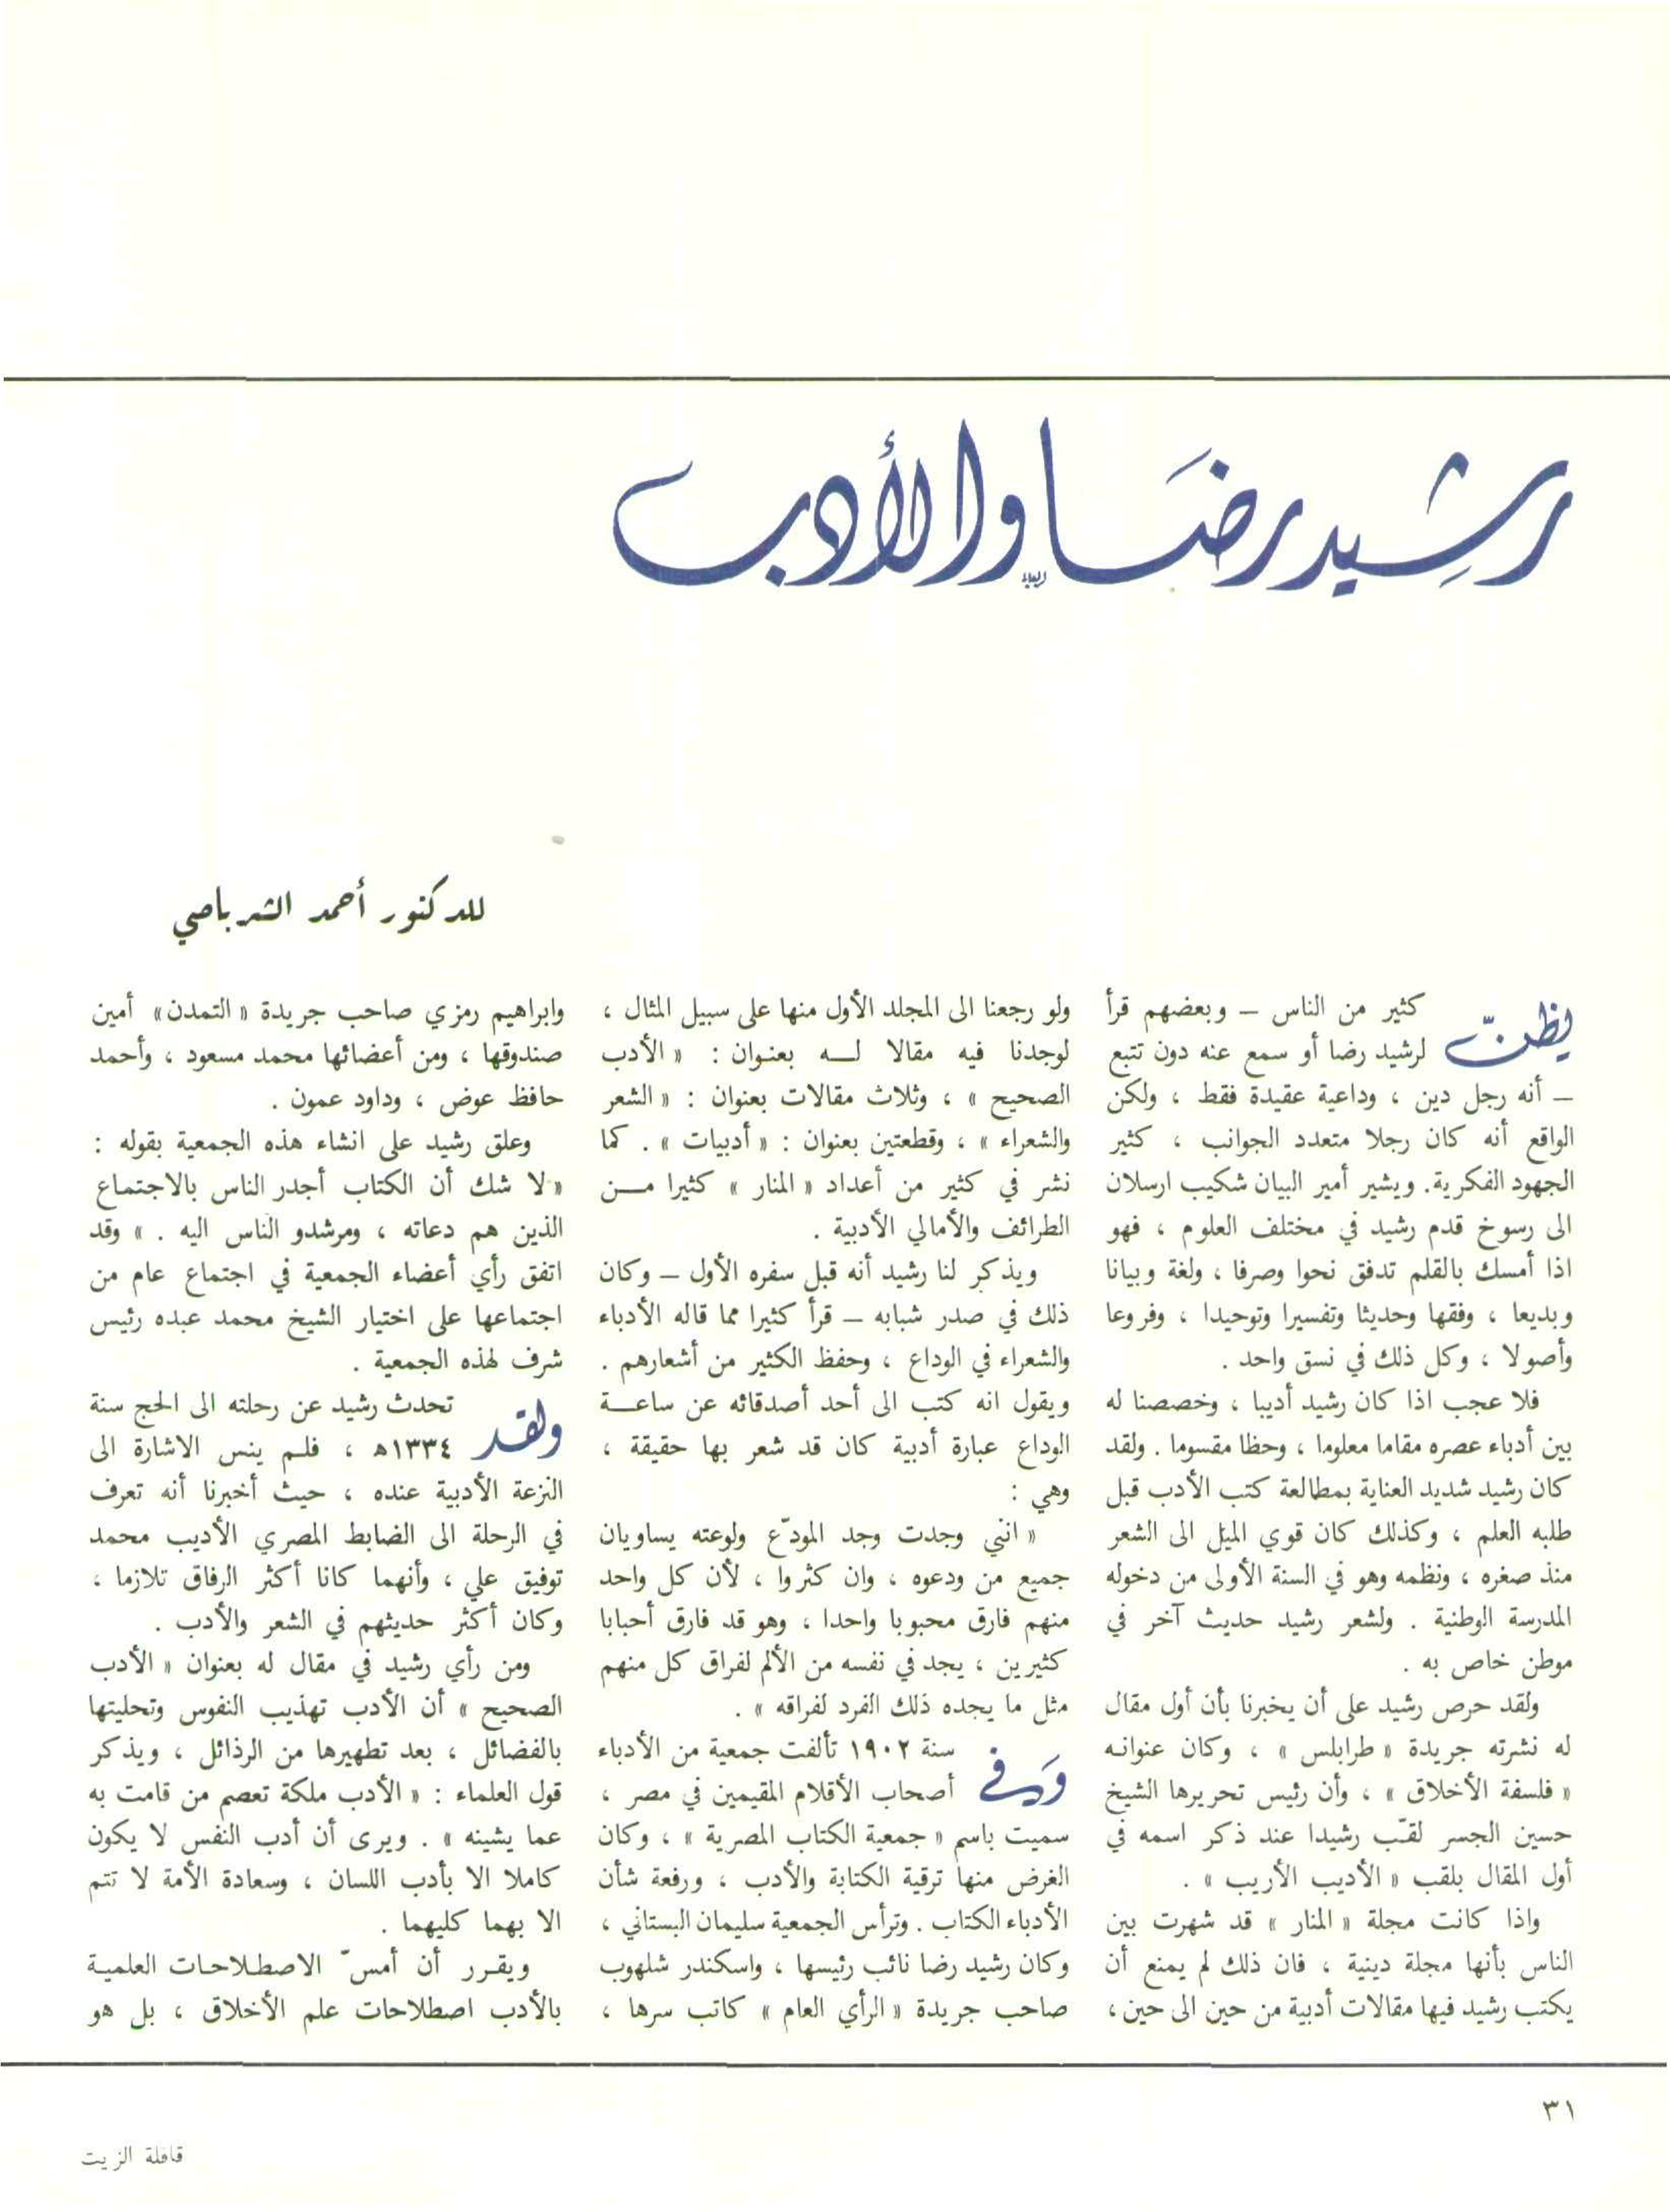 رشيد رضا والأدب
للدكتور أحمد الشرباصي
يظنّ كثير من الناس – وبعضهم قرأ
لرشيد رضا أو سمع عنه دون تتبع
– أنه رجل دين ، وداعية عقيدة فقط ، ولكن
الواقع أنه كان رجلا متعدد الجوانب ، كثير
الجهود الفكرية. ويشير أمير البيان شكيب ارسلان
الى رسوخ قدم رشيد في مختلف العلوم ، فهو
اذا أمسك بالقلم تدفق نحوا وصرفا ، ولغة وبيانا
وبديعا ، وفقها وحديثا وتفسيرا وتوحيدا ، وفروعا
وأصولا ، وكل ذلك في نسق واحد .
فلا عجب اذا كان رشيد أديبا ، وخصصنا له
بين أدباء عصره مقاما معلوما ، وحظا مقسوما . ولقد
كان رشيد شديد العناية بمطالعة كتب الأدب قبل
طلبه العلم ، وكذلك كان قوي الميل الى الشعر
منذ صغره ، ونظمه وهو في السنة الأولى من دخوله
المدرسة الوطنية . ولشعر رشيد حديث آخر في
موطن خاص به .
ولقد حرص رشيد على أن يخبرنا بأن أول مقال
له نشرته جريدة « طرابلس » ، وكان عنوانه
« فلسفة الأخلاق » ، وأن رئيس تحريرها الشيخ
حسين الجسر لقّب رشيدا عند ذكر اسمه في
أول المقال بلقب « الأديب الأريب » .
واذا كانت مجلة « المنار » قد شهرت بين
الناس بأنها مجلة دينية ، فان ذلك لم يمنع أن
يكتب رشيد فيها مقالات أدبية من حين الى حين،
ولو رجعنا الى المجلد الأول منها على سبيل المثال ،
لوجدنا فيه مقالا له بعنوان : « الأدب
الصحيح » ، وثلاث مقالات بعنوان : « الشعر
والشعراء » ، وقطعتين بعنوان : « أدبيات » . كما
نشر في كثير من أعداد « المنار » كثيرا من
الطرائف والأمالي الأدبية .
ويذكر لنا رشيد أنه قبل سفره الأول – وكان
ذلك في صدر شبابه – قرأ كثيرا مما قاله الأدباء
والشعراء في الوداع ، وحفظ الكثير من أشعارهم .
ويقول انه كتب الى أحد أصدقائه عن ساعة
الوداع عبارة أدبية كان قد شعر بها حقيقة ،
وهي :
« انني وجدت وجد المودّع ولوعته يساويان
جميع من ودعوه ، وان كثروا ، لأن كل واحد
منهم فارق محبوبا واحدا ، وهو قد فارق أحبابا
كثيرين ، يجد في نفسه من الألم لفراق كل منهم
مثل ما يجده ذلك الفرد لفراقه » .
وفي سنة ١٩٠٢ تألفت جمعية من الأدباء
أصحاب الأقلام المقيمين في مصر ،
سميت باسم « جمعية الكتاب المصرية » ، وكان
الغرض منها ترقية الكتابة والأدب ، ورفعة شأن
الأدباء الكتاب . وترأس الجمعية سليمان البستاني ،
وكان رشيد رضا نائب رئيسها ، واسكندر شلهوب
صاحب جريدة « الرأي العام » كاتب سرها ،
وابراهيم رمزي صاحب جريدة « التمدن» أمين
صندوقها ، ومن أعضائها محمد مسعود ، وأحمد
حافظ عوض ، وداود عمون .
وعلق رشيد على انشاء هذه الجمعية بقوله :
« لا شك أن الكتاب أجدر الناس بالاجتماع
الذين هم دعاته ، ومرشدو الناس اليه . » وقد
اتفق رأي أعضاء الجمعية في اجتماع عام من
اجتماعها على اختيار الشيخ محمد عبده رئيس
شرف لهذه الجمعية .
ولقد تحدث رشيد عن رحلته الى الحج سنة
١٣٣٤ه ، فلم ينس الاشارة الى
النزعة الأدبية عنده ، حيث أخبرنا أنه تعرف
في الرحلة الى الضابط المصري الأديب محمد
توفيق علي ، وأنهما كانا أكثر الرفاق تلازما ،
وكان أكثر حديثهم في الشعر والأدب .
ومن رأي رشيد في مقال له بعنوان « الأدب
الصحيح » أن الأدب تهذيب النفوس وتحليتها
بالفضائل ، بعد تطهيرها من الرذائل ، ويذكر
قول العلماء : « الأدب ملكة تعصم من قامت به
عما يشينه » . ويرى أن أدب النفس لا يكون
كاملا الا بأدب اللسان ، وسعادة الأمة لا تتم
الا بهما كليهما .
ويقرر أن أمسّ الاصطلاحات العلمية
بالأدب اصطلاحات علم الأخلاق ، بل هو
٣١
قافلة الزيت